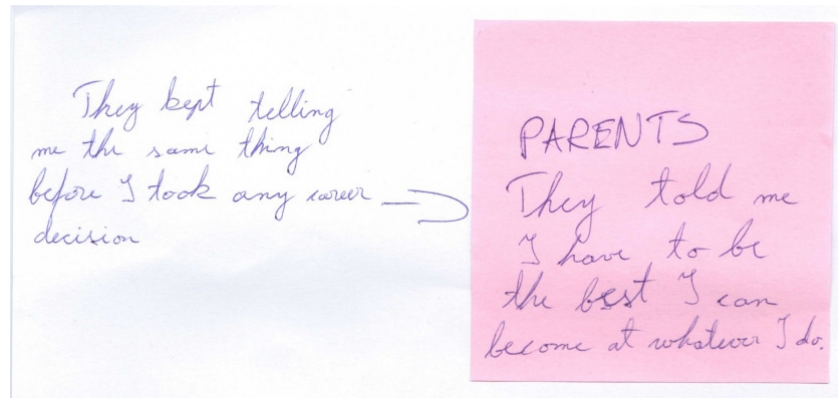 They kept telling
me the same thing
before I took any career
decision
PARENTS
They told me
I have to be
the best I can
become at whatever I do.